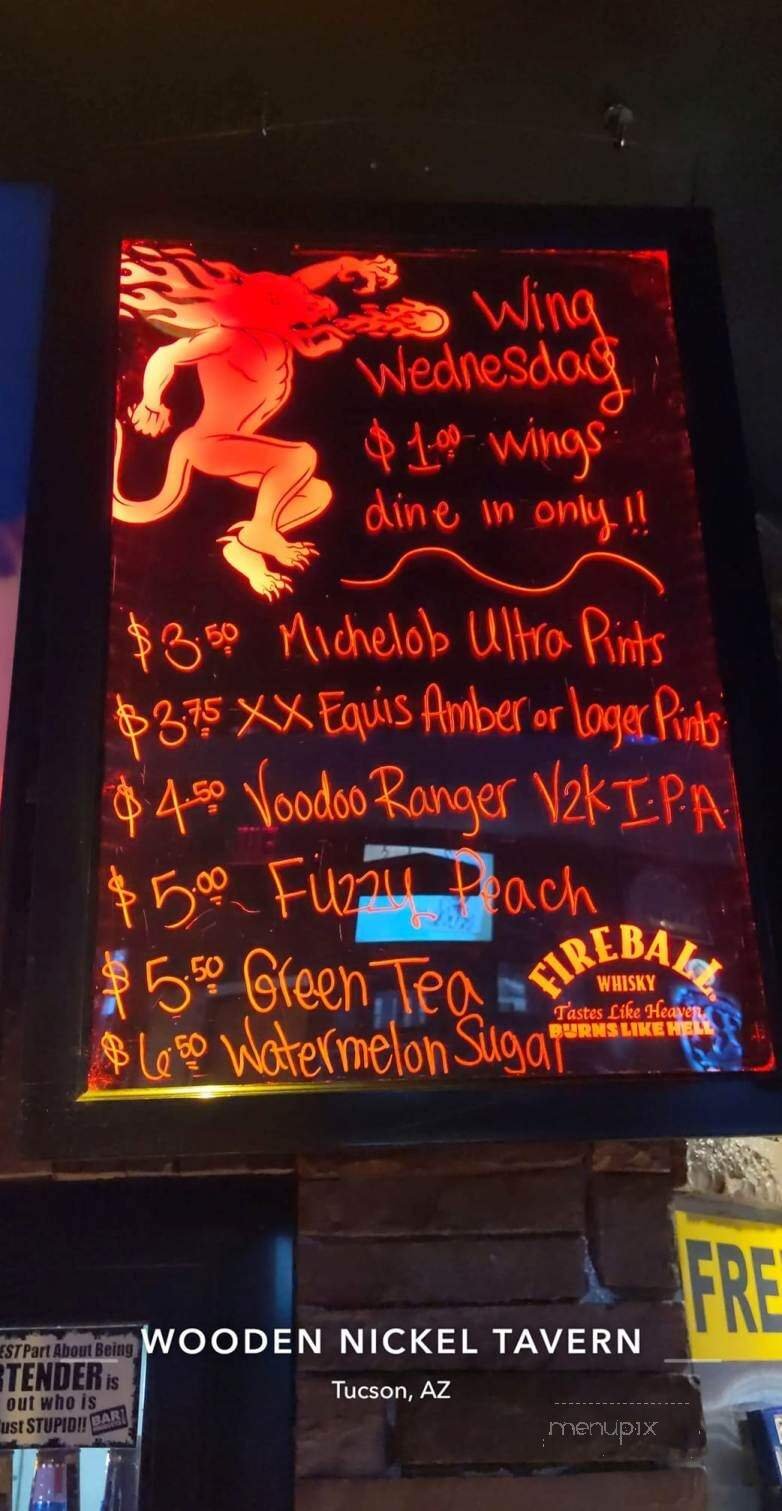 Wing
Wednesday
$1.00 wings
dine in only!!
$3.50 Michelob Ultra Pints
$3.75 XX Equis Amber or Lager Pints
$4.50 Voodoo Ranger V2K I.P.A.
$5.00 Fuzzy Peach
$5.50 Green Tea
$6.50 Watermelon Sugar
FIREBALL
WHISKY
Tastes Like Heaven,
BURNS LIKE HELL
FRE
WOODEN NICKEL TAVERN
Tucson, AZ
EST Part About Being
TENDER is
out who is
ust STUPID!! BAR
menupix